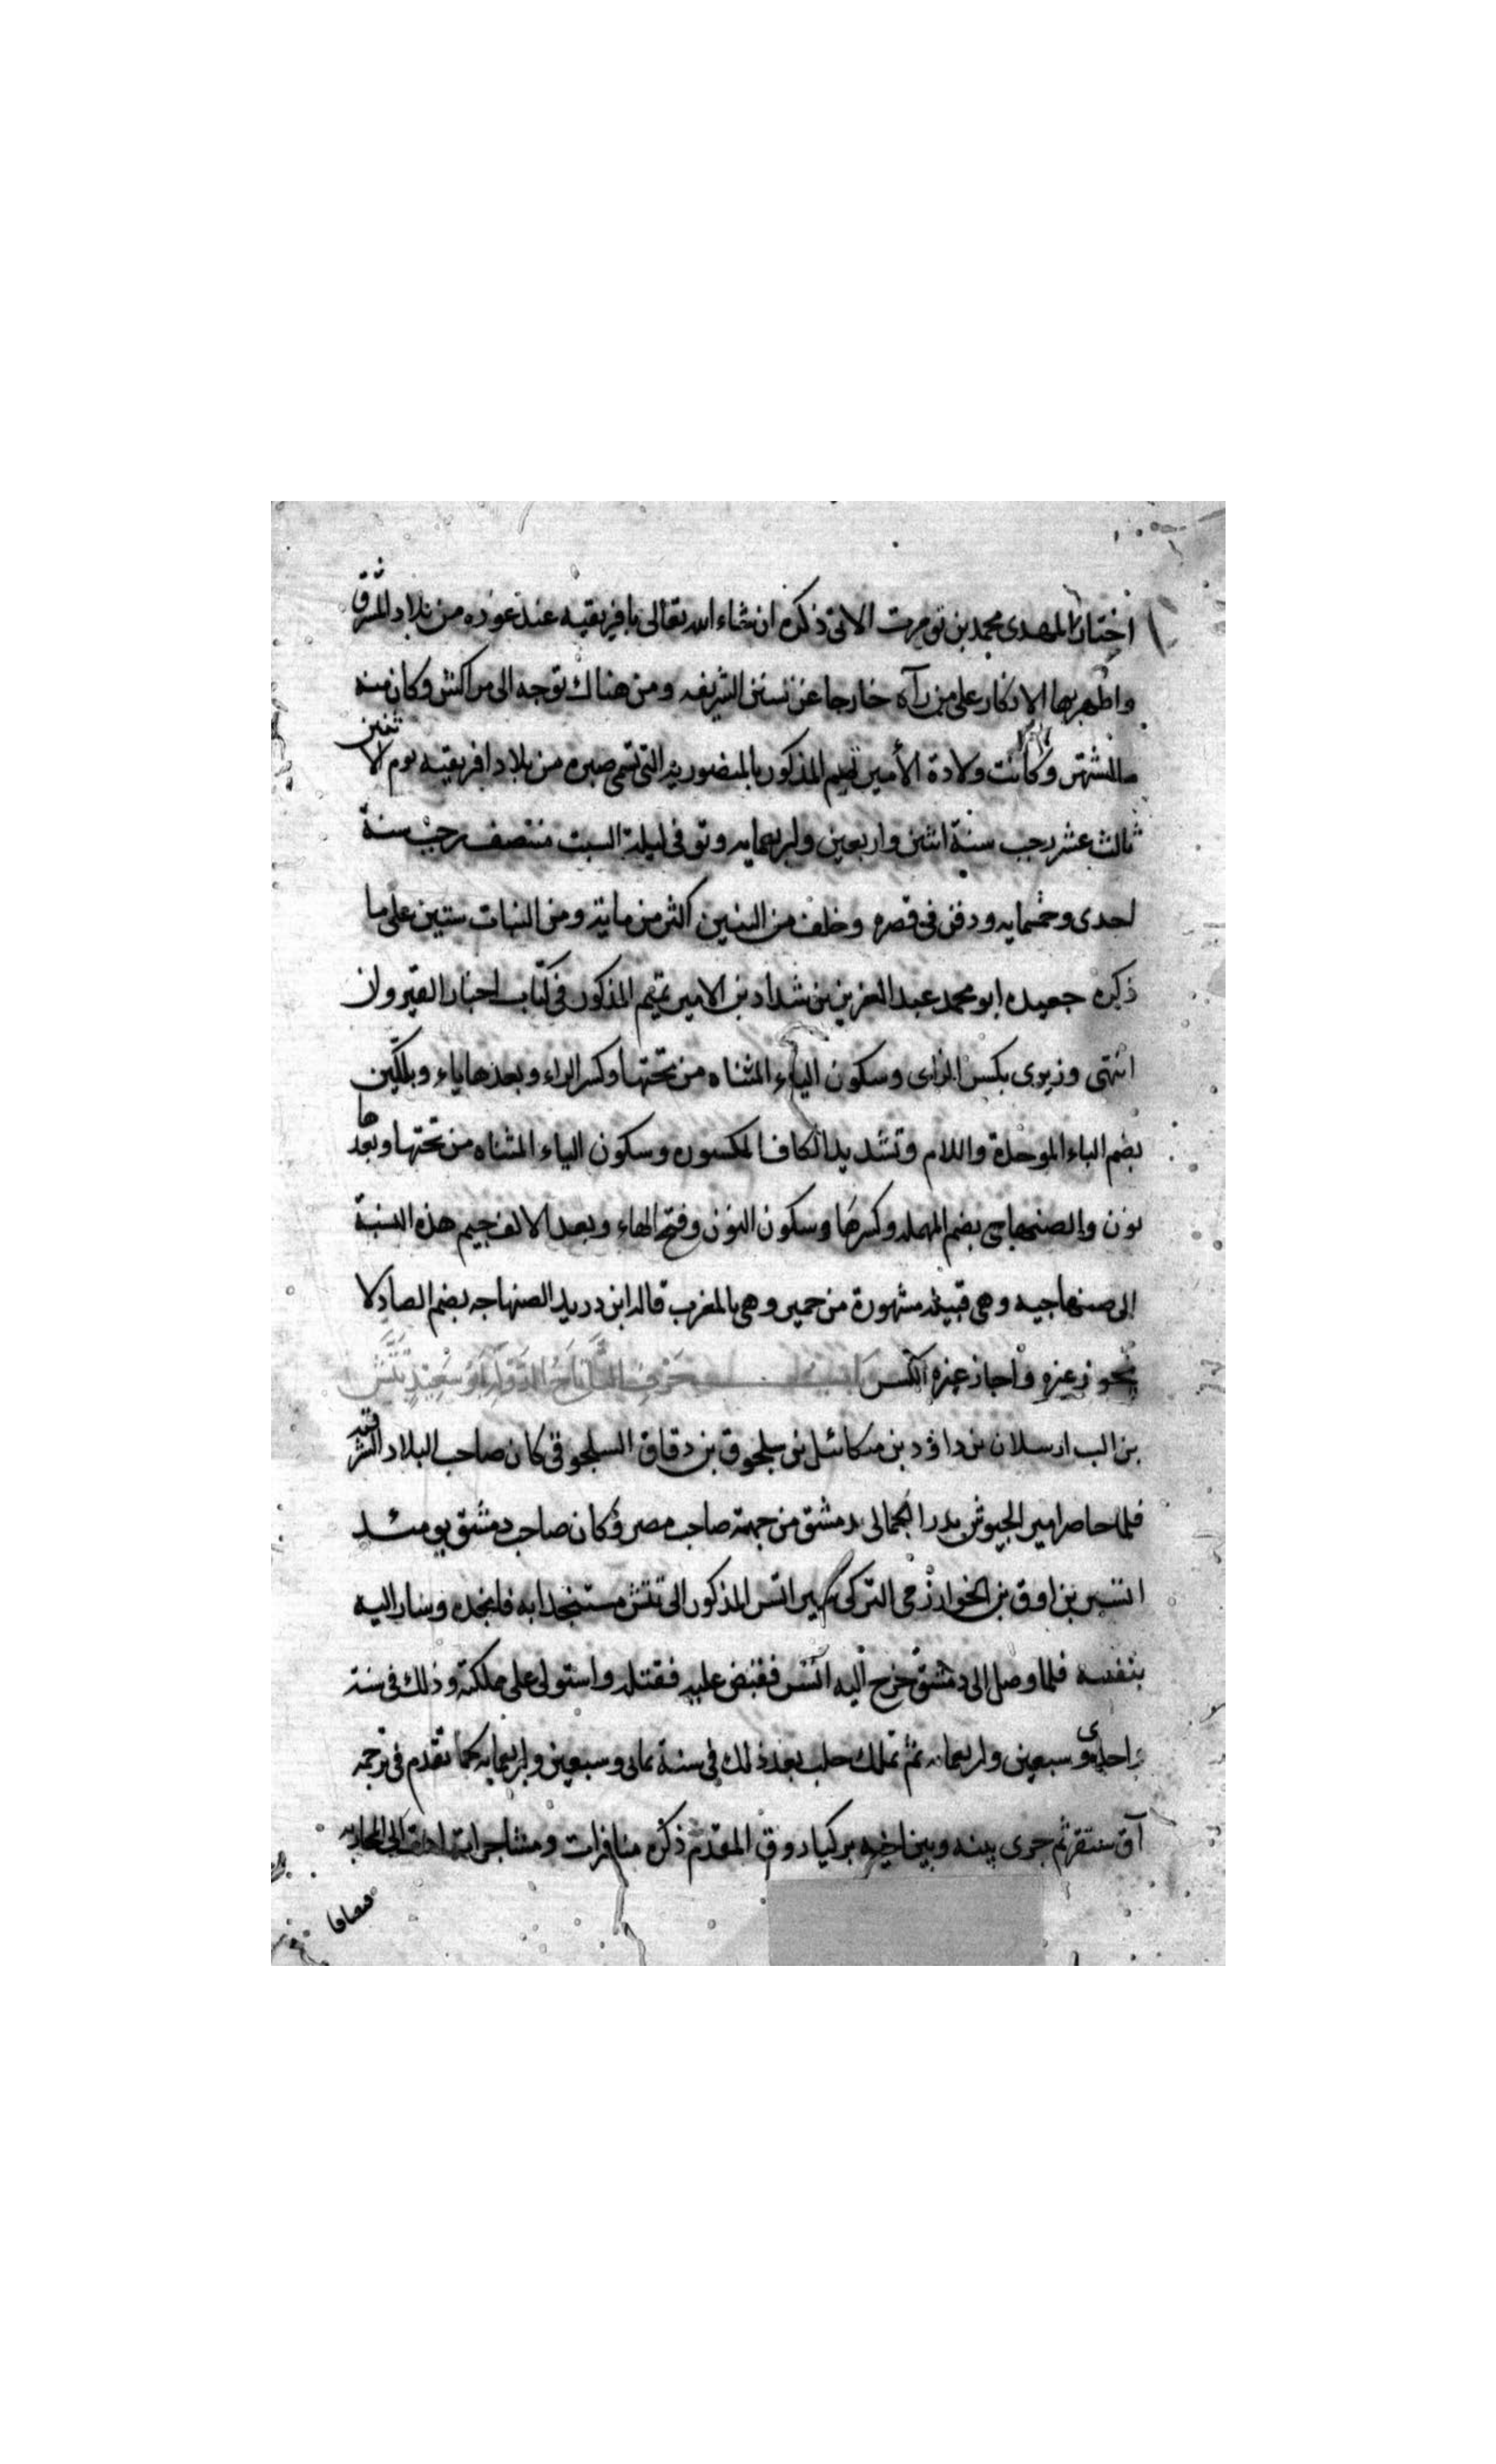 اختار المهدى محمد بن تومرت الاتى ذكره ان شاء الله تعالى بافريقيه عند عوده من بلاد المشرق
واظهر بها الانكار على من رآه خارجا عن سنن الشريعه ومن هناك توجه الى مراكش وكان منه
ما اشتهر وكانت ولادة الأمير تميم المذكور بالمنصورية التى تسمى صبره من بلاد افريقيه يوم الاثنين
ثالث عشر رجب سنة اثنين واربعين واربعمايه وتوفى ليلة السبت منتصف رجب سنة
احدى وخمسمايه ودفن فى قصره وخلف من البنين اكثر من ماية ومن البنات ستين على ما
ذكره حفيده ابو محمد عبد العزيز بن شداد بن الامير تميم المذكور فى كتاب اخبار القيروان
انتهى وزيرى بكسر الزاى وسكون الياء المثناه من تحتها وكسر الراء وبعدها ياء وبلكين
بضم الباء الموحدة واللام وتشديد الكاف المكسوره وسكون الياء المثناه من تحتها وبعدها
نون والصنهاجى بضم المهملة وكسرها وسكون النون وفتح الهاء وبعد الالف جيم هذه النسبة
الى صنهاجيه وهى قبيلة مشهورة من حمير وهى بالمغرب قاله ابن دريد الصنهاجه بضم الصاد لا
يجوز غيره واجاز غيره الكسر حرف التاء تاج الدولة ابو سعيد تتش
بن الب ارسلان بن داؤد بن ميكائيل بن سلجوق بن دقاق السلجوقى كان صاحب البلاد الشرقيه
فلما حاصر امير الجيوش بدر الجمالى دمشق من جهة صاحب مصر وكان صاحب دمشق يومئذ
اتسز بن اوق بن الخوارزمى التركى سير اتسز المذكور الى تتش مستنجدا به فانجده وسار اليه
بنفسه فلما وصل الى دمشق خرج اليه اتسز فقبض عليه فقتله واستولى على مملكته وذلك فى سنة
احدى وسبعين واربعمايه ثم تملك حلب بعد ذلك فى سنة ثمانى وسبعين واربعمايه كما تقدم فى ترجمه
آق سنقر ثم جرى بينه وبين اخيه بركياروق المقدم ذكره منافرات ومشاجرات الى المحاربه